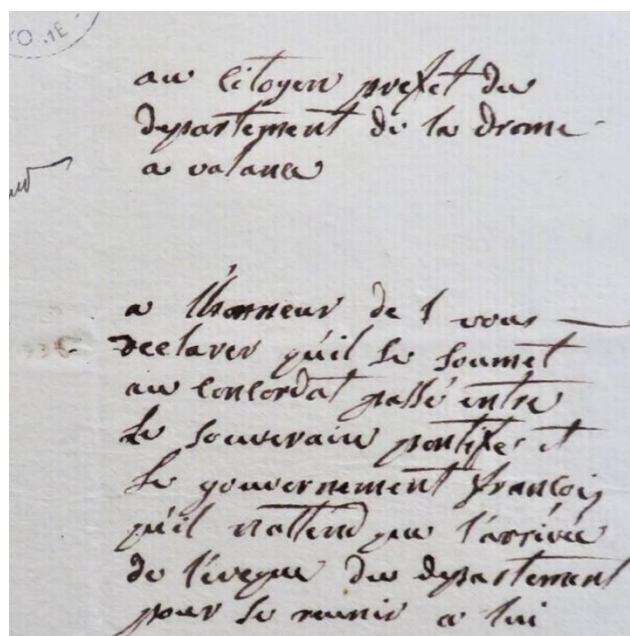 au citoyen prefet du
departement de la drome
a valance
a lhonneur de vous
declarer qu'il se soumet
au concordat passé entre
le souverain pontife et
le gouvernement françois
qu'il n'attend que l'arrivée
de l'eveque du departement
pour se reunir a lui